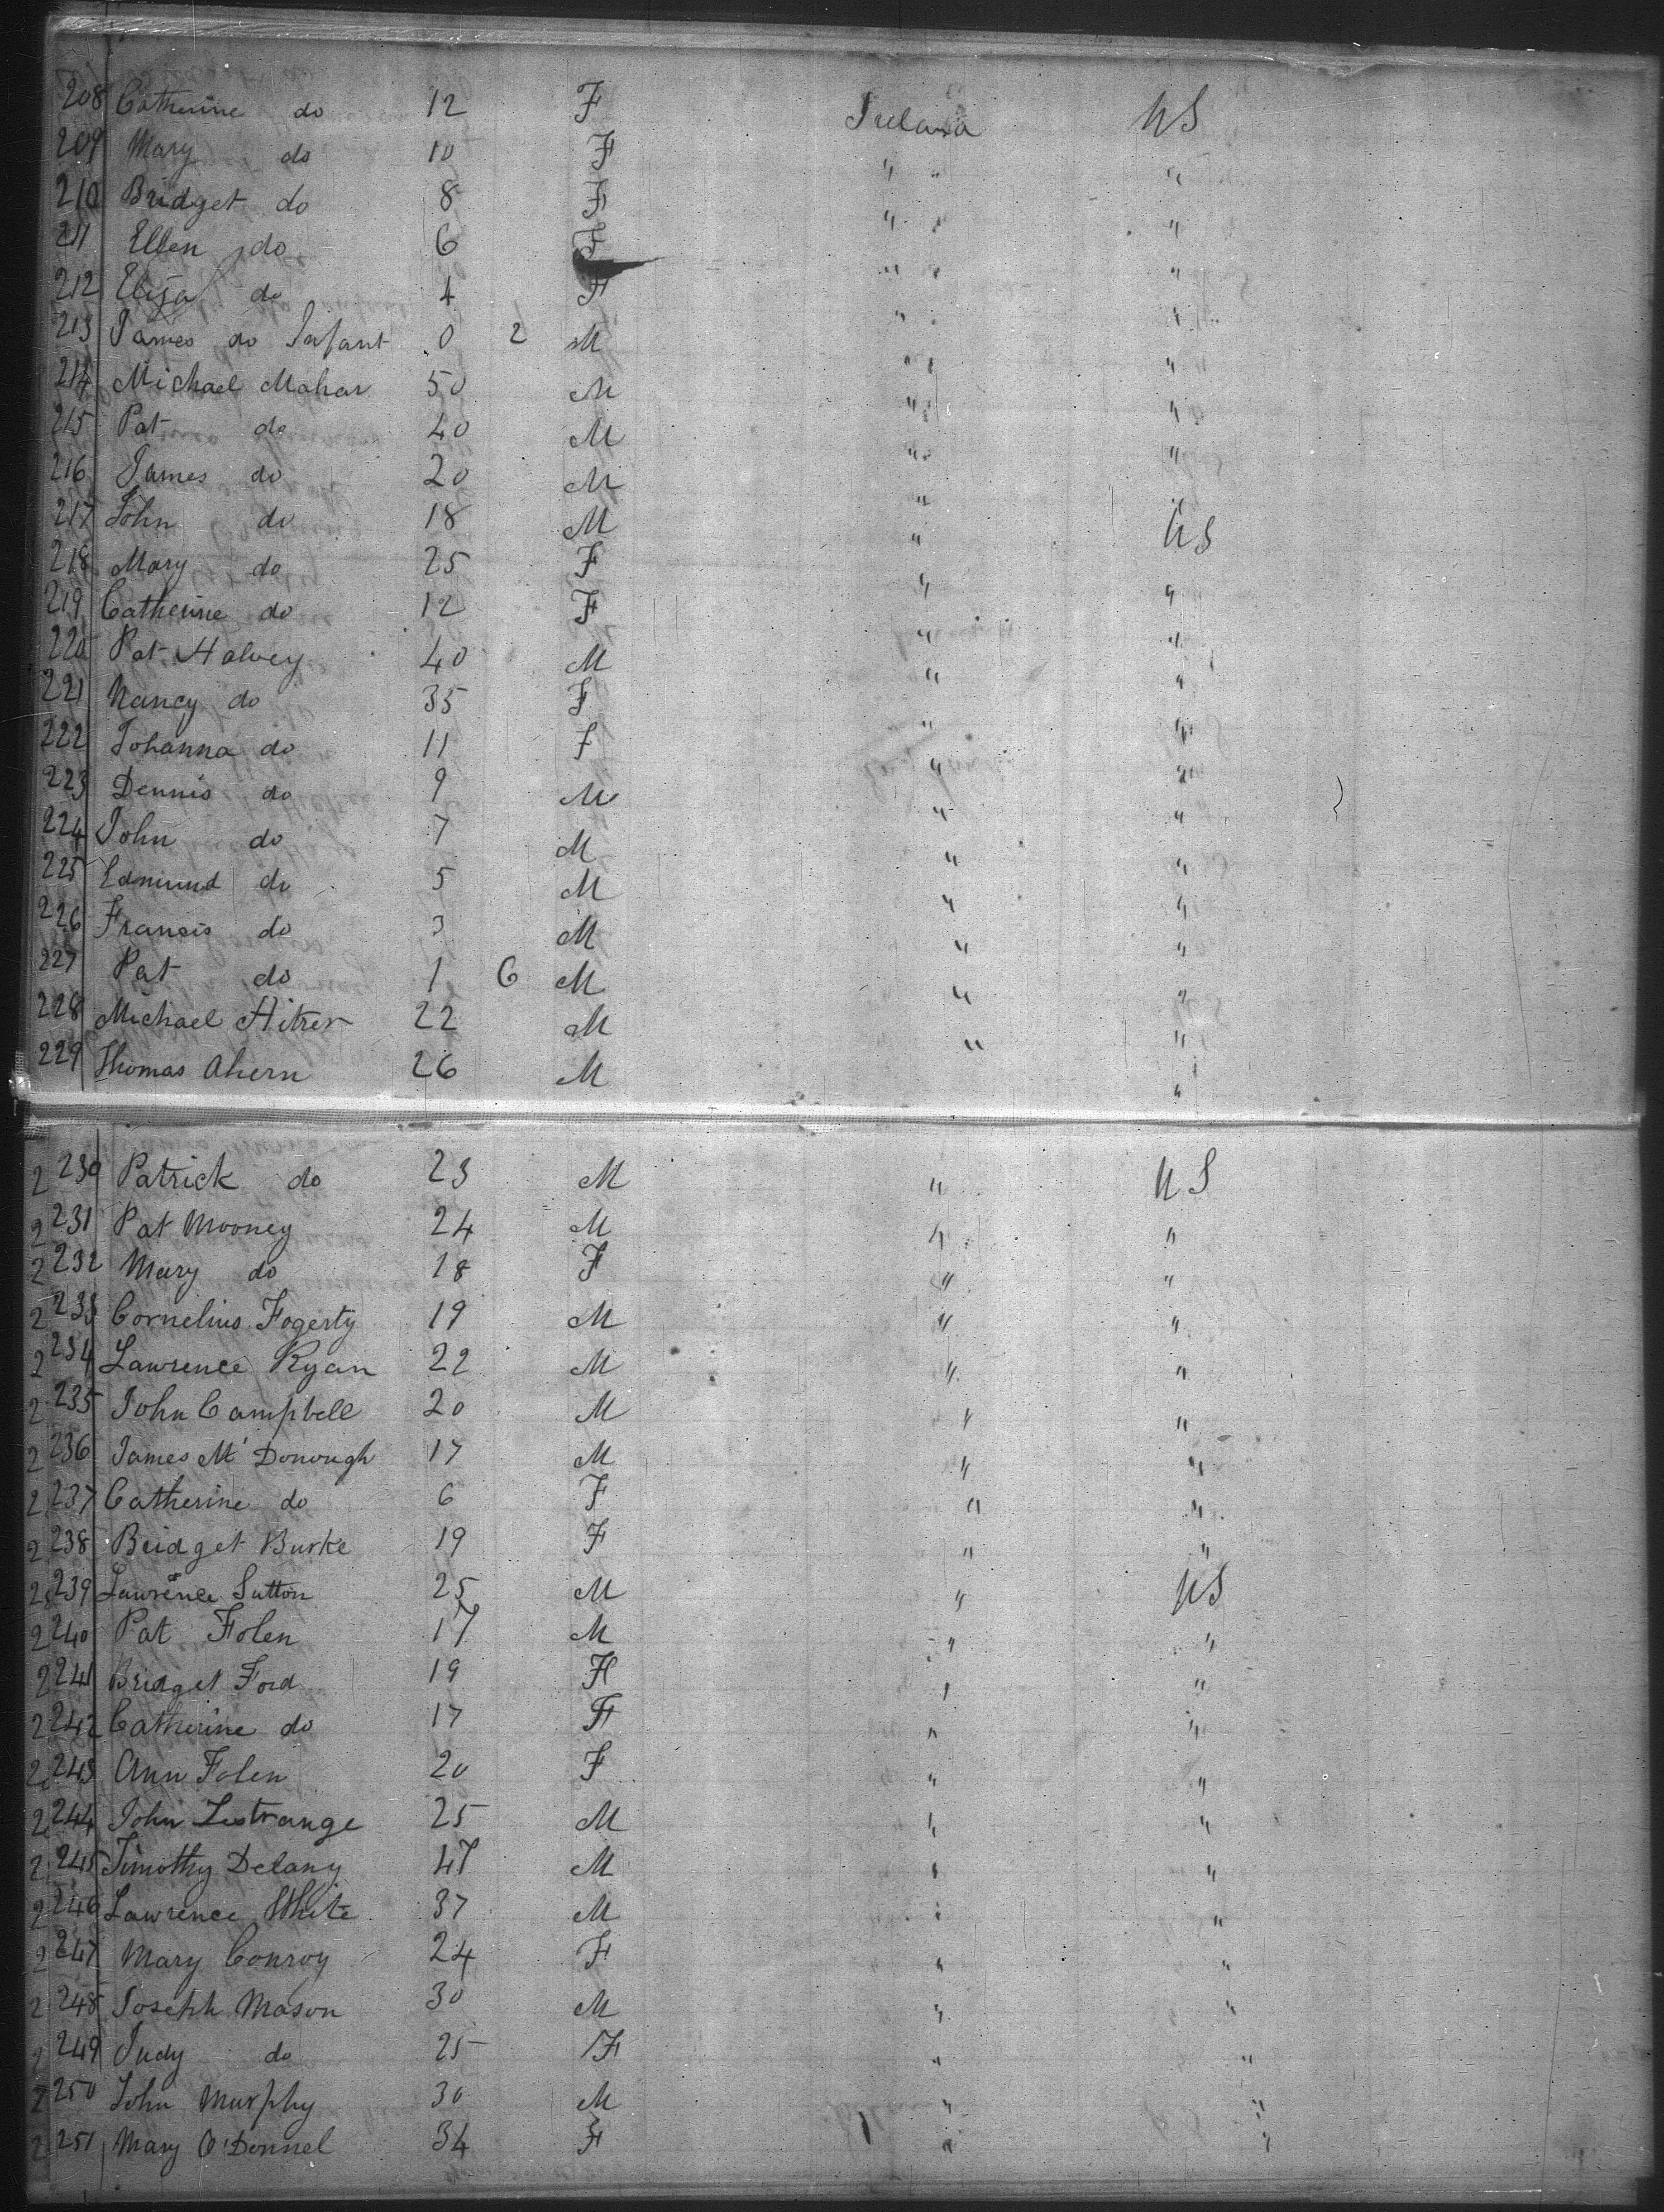 208 Catherine do 12 F Ireland US
209 Mary do 10 F " "
210 Bridget do 8 F " "
211 Ellen do 6 F " "
212 Eliza do 4 F " "
213 James do Infant 0 2 M " "
214 Michael Mahar 50 M " "
215 Pat do 40 M " "
216 James do 20 M " "
217 John do 18 M " US
218 Mary do 25 F " "
219 Catherine do 12 F " "
220 Pat Halvey 40 M " "
221 Nancy do 35 F " "
222 Johanna do 11 f " "
223 Dennis do 9 M " "
224 John do 7 M " "
225 Edmund do 5 M " "
226 Francis do 3 M " "
227 Pat do 1 6 M " "
228 Michael 22 M " "
229 Thomas Ahern 26 M "
230 Patrick do 23 M " US
231 Pat Mooney 24 M " "
232 Mary do 18 F " "
233 Cornelius Fogerty 19 M " "
234 Lawrence Ryan 22 M " "
235 John Campbell 20 M " "
236 James M'Donough 17 M " "
237 Catherine do 6 F " "
238 Bridget Burke 19 F " "
239 Lawrence Sutton 25 M " US
240 Pat Folen 17 M " "
241 Bridget Ford 19 F " "
242 Catherine do 17 F " "
243 Ann Folen 20 F " "
244 John Lestrange 25 M " "
245 Timothy Delany 47 M " "
246 Lawrence White 37 M " "
247 Mary Conroy 24 F " "
248 Joseph Mason 30 M " "
249 Judy do 25 F " "
250 John Murphy 30 M " "
251 Mary O'Donnel 34 F " "